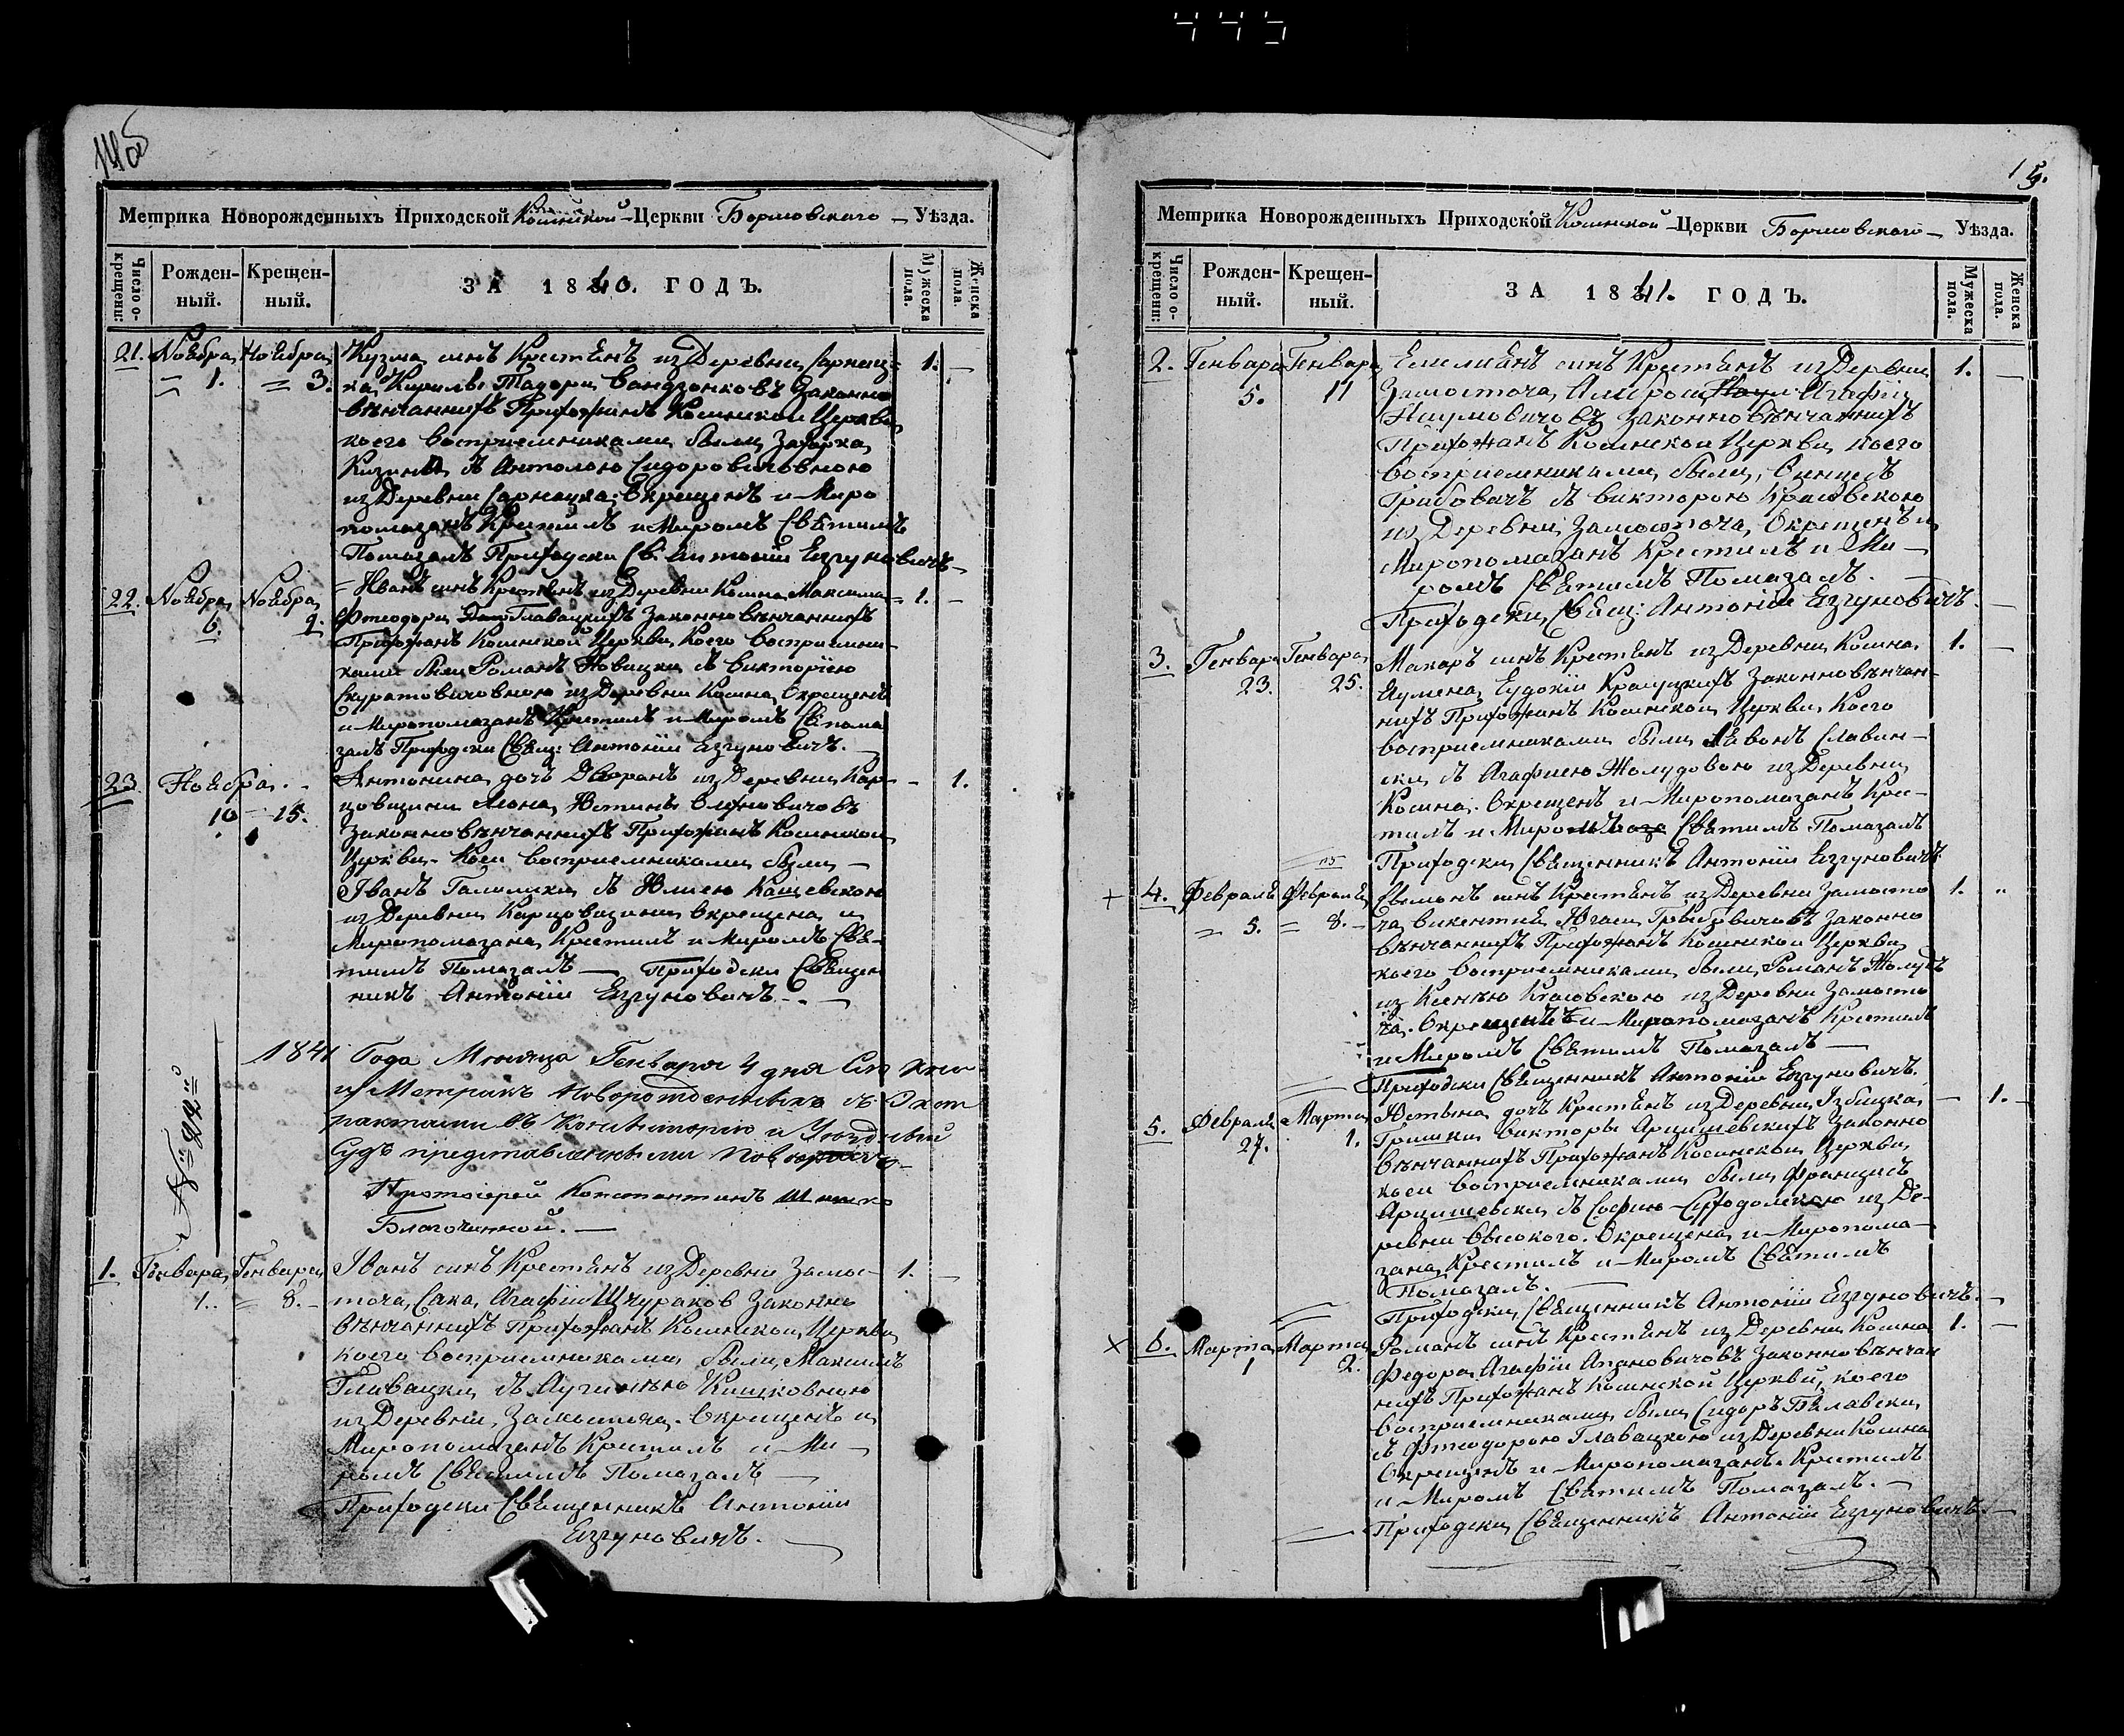 445
14об
Метрика Новорожденныхъ Приходской Косинской Церкви Борисовскаго Уѣзда.
Число окрещенн:
Рожденный.
Крещенный.
ЗА 1840. ГОДЪ.
Мужеска пола.
Женска пола.
21. Ноября 1. Ноября 3. 1.
Кузма синъ Крестянъ изъ Деревни
Кирилы Тадоры Законно
вѣнчаннихъ Прихожанъ Косинской Церкви
коего восприемниками были Захарка
съ Антолою Сидоровичовною
изъ Деревни Окрещенъ и Миро
помазанъ Крестилъ и Миромъ Святимъ
Помазалъ Приходски Св: Антоній Езгуновичъ
22. Ноября 6. Ноября 9. 1.
Иванъ синъ Крестянъ изъ Деревни Косина Максима
Фтеодоры Главацкихъ Законно вѣнчаннихъ
Прихожанъ Косинской Церкви, Коего восприемни-
ками были Романъ Новицки съ Викторіею
Скуратовичовною изъ Деревни Косина, Окрещенъ
и Миропомазанъ Крестилъ и Миромъ Св: пома
залъ Приходски Свящ: Антоніи Езгуновичъ.
23. Ноября 10 15. 1.
Антонина дочъ Дворянъ изъ Деревни Кар-
цовщизни
Законно вѣнчаннихъ Прихожанъ Косинской
Церкви. Коеи восприемниками были
Іванъ съ Юлиею
изъ Деревни Карцовщизни Окрещена и
Миропомазана Крестилъ и Миромъ Свя-
тимъ Помазалъ Приходски Священ
никъ Антоніи Езгуновичъ.
1841 Года Месяца Генваря 4 дня Сіи Кни
ги Метрикъ Новорожденныхъ съ Экст
рактами въ Консисторію и Уездный
Судъ представленными
Протоіерей Константинъ
Благочинной.
1. Генваря 1. Генваря 8. 1.
Іванъ синъ Крестянъ изъ Деревни Замос-
точа, Сака, Агафіи Шчураков Законно
вѣнчаннихъ Прихожанъ Косинской Церкви
коего восприемниками были Максимъ
Главацки съ
изъ Деревни Замосточа. Окрещенъ и
Миропомазанъ Крестилъ и Ми-
ромъ Святимъ Помазалъ
Приходски Священникъ Антоніи
Езгуновичъ.
15.
Метрика Новорожденныхъ Приходской Косинской Церкви Борисовскаго Уѣзда.
Число окрещенн:
Рожденный.
Крещенный.
ЗА 1841. ГОДЪ.
Мужеска пола.
Женска пола.
2. Генваря 5. Генваря 11 1.
Емелиянъ синъ Крестянъ изъ Деревни
Замосточа, Амброси Агафіи
Наумовичовъ Законно вѣнчаннихъ
Прихожанъ Косинской Церкви, коего
восприемниками были,
съ Викторою Красовскою
изъ Деревни Замосточа, Окрещенъ и
Миропомазанъ Крестилъ и Ми-
ромъ Святимъ Помазалъ.
Приходски Свящ: Антоніи Езгуновичъ.
3. Генваря 23. Генваря 25. 1.
Макаръ синъ Крестянъ изъ Деревни Косина
Еудокіи Законно вѣнчан-
нихъ Прихожанъ Косинской Церкви, Коего
восприемниками были Славин-
ски съ Агафиею Жолудовою изъ Деревни
Косина. Окрещенъ и Миропомазанъ Крес-
тилъ и Миромъ Святимъ Помазалъ
Приходски Священникъ Антоніи Езгуновичъ
+ 4. Февраля 5. Февраля 8. 1.
синъ Крестянъ изъ Деревни Замосто
ча Викентия Законно
вѣнчаннихъ Прихожанъ Косинской Церкви
коего восприемниками были, Романъ Жолудъ
изъ Ксенѣю Красовскою изъ Деревни Замосто
ча. Окрещенъ и Миропомазанъ Крестилъ
и Миромъ Святимъ Помазалъ
Приходски Священникъ Антоніи Езгуновичъ.
5. Февраля 27. Марта 1. 1.
Юстына дочъ Крестянъ изъ Деревни Ізбицка
Гришки Викторы Арцишевскихъ Законно
вѣнчаннихъ Прихожанъ Косинской Церкви
коеи восприемниками были Францишъ
Арцишевски съ Софию изъ Де-
ревни Високого. Окрещена и Миропома-
зана Крестилъ и Миромъ Святимъ
Помазалъ.
Приходски Священникъ Антоніи Езгуновичъ.
× 6. Марта 1 Марта 2. 1.
Романъ синъ Крестянъ изъ Деревни Косина
Федора Агафіи Апановичовъ Законно вѣнчан
нихъ Прихожанъ Косинской Церкви, коего
восприемниками были Сидоръ Бялавски
съ Фтеодорою Главацкою изъ Деревни Косина
Окрещенъ и Миропомазанъ. Крестилъ
и Миромъ Святимъ Помазалъ.
Приходски Священникъ Антоніи Езгуновичъ.